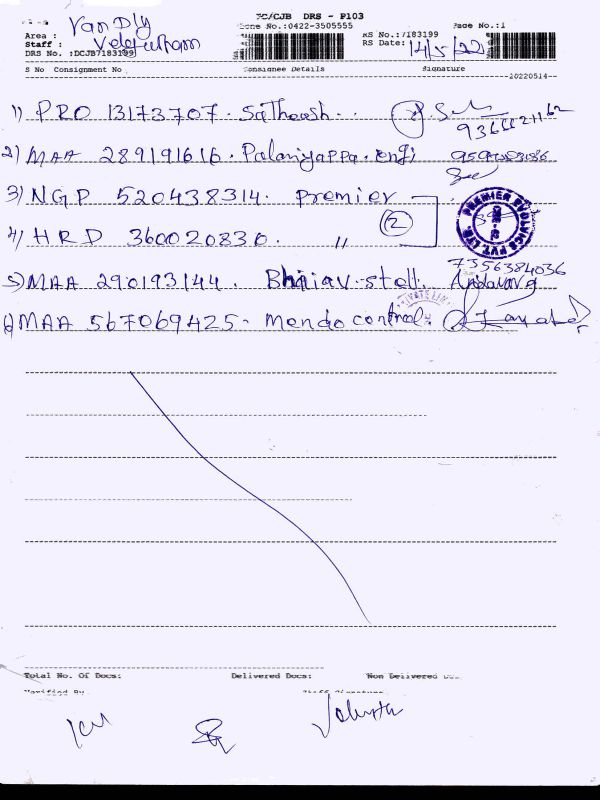 PC/CJB DRS - P103
Area : Van Dly
Phone No.:0422-3505555
RS No.:7183199
Page No.:1
Staff :
RS Date: 14/5/22
DRS No. :DCJB7183199
S No Consignment No Consignee Details Signature
20220514
1) PRO 13173707 . Satheesh . .
2) MAA 289191616 . Palaniyappa . engi
3) NGP 520438314 . Premier
PREMIER EVOLVICS PVT. LTD.
2
4) HRD 360020830 . 〃
7356384036
5) MAA 290193144 . Bhairav . stell .
6) MAA 567069425 - Mendo control .
Total No. Of Docs: Delivered Docs: Non Delivered
Verified By Staff Signature